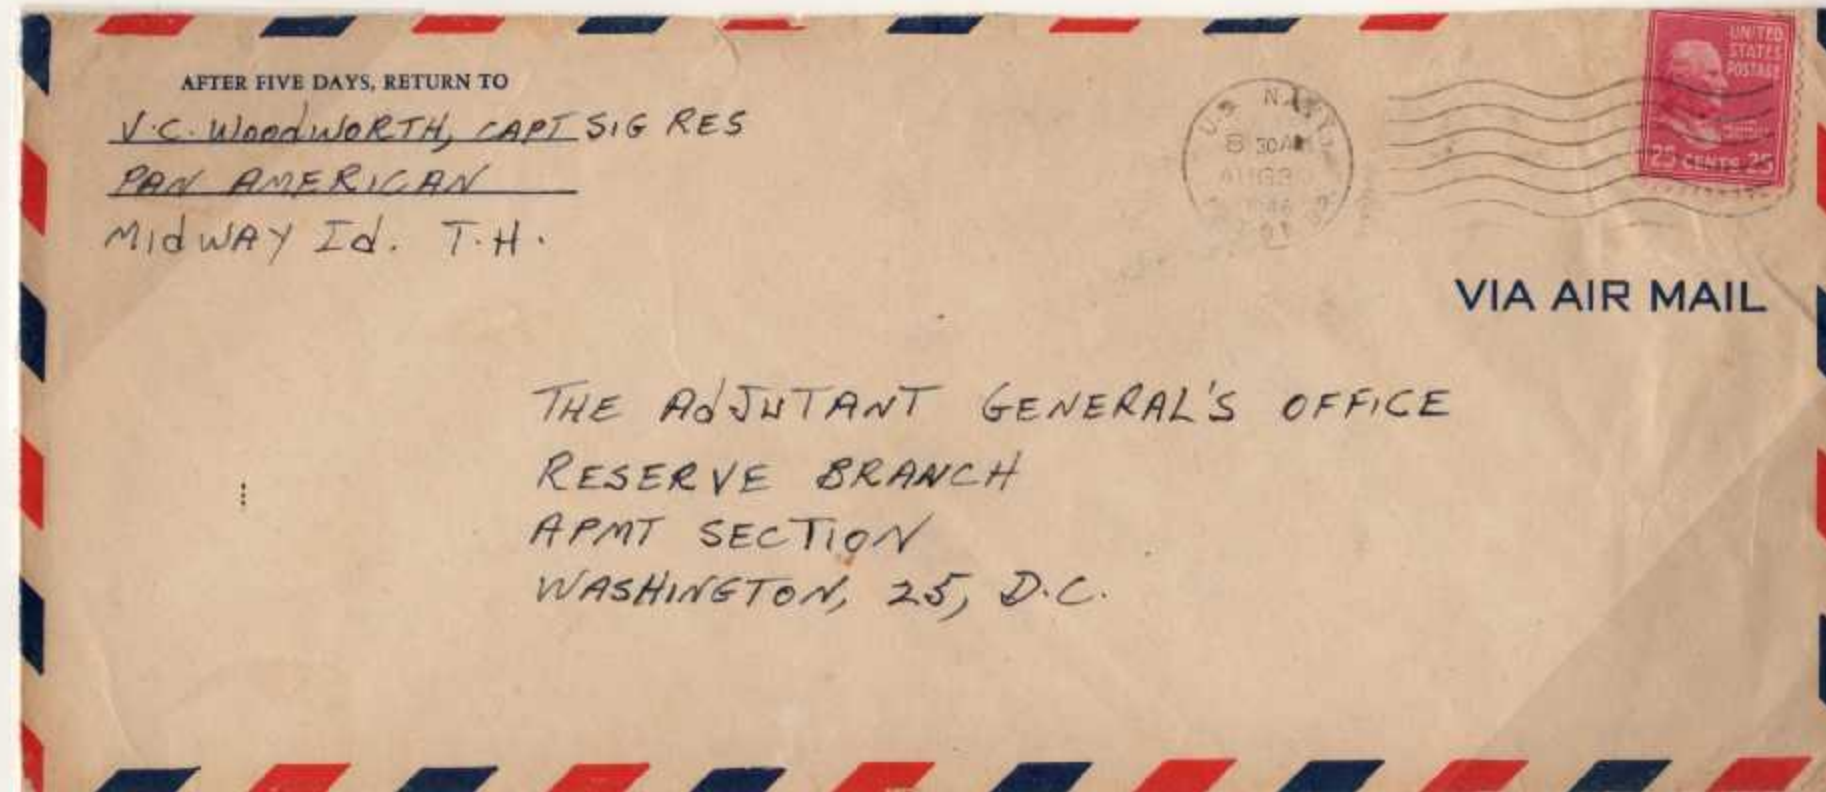 AFTER FIVE DAYS, RETURN TO
V.C. WoodWORTH, CAPT SIG RES
PAN AMERICAN
MIdWAY Id. T.H.
U.S. NAVY
8 30AM
AUG 30
1946
UNITED
STATES
POSTAGE
25 CENTS 25
VIA AIR MAIL
THE AdJUTANT GENERAL'S OFFICE
RESERVE BRANCH
APMT SECTION
WASHINGTON, 25, D.C.